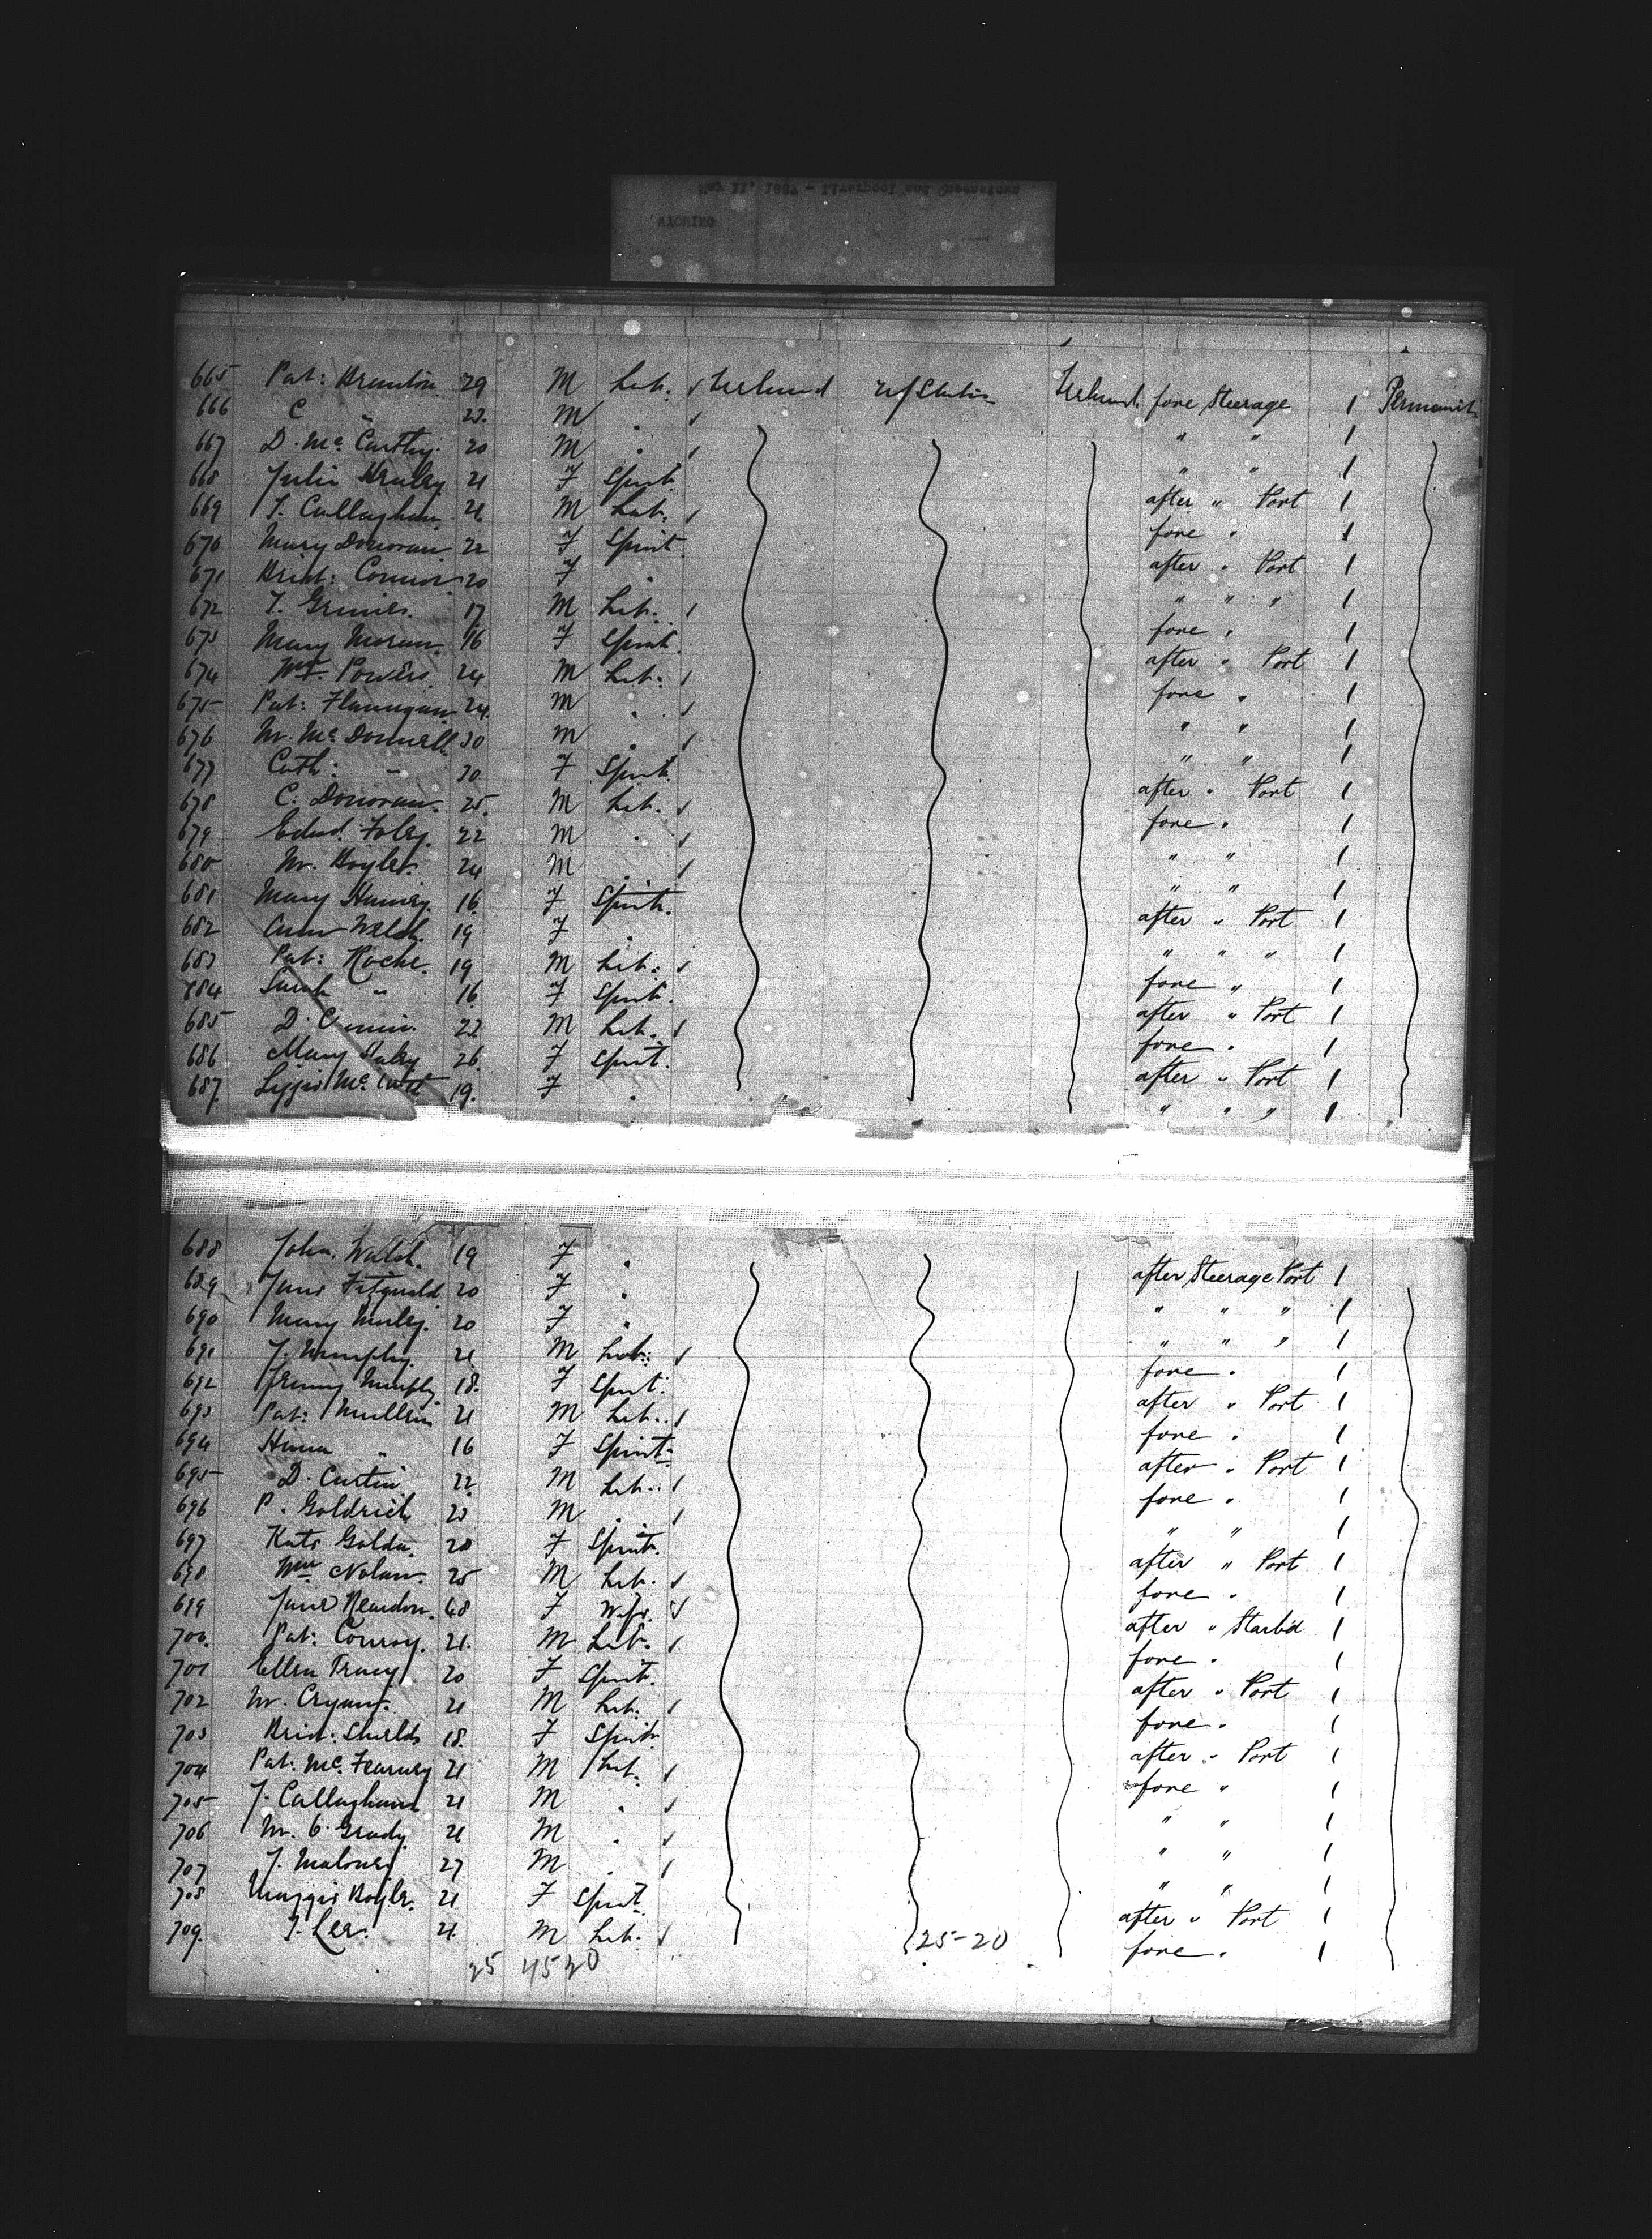 May 11, 1887 - Liverpool and Queenstown
WYOMING
665 Pat: 29 M Lab. Ireland U/States Ireland fore Steerage 1 Permanent
666 C " 22. M " " " 1
667 D. Mc. Carthy. 20 M " " " 1
668 Julia Healey 21 F Spinst. after " Port 1
669 T. Callaghan 21 M Lab. fore " 1
670 Mary Donovan 22 F Spinst. after " Port 1
671 Brid: Connor 20 F " " " " 1
672 T. Grimes. 17 M Lab. fore " 1
673 Mary Moran. 16 F Spinst. after " Port 1
674 Wm. Powers 24 M Lab. fore " 1
675 Pat: Flannigan 24. M " " " 1
676 M. Mc. Donnell 30 M " " " 1
677 Cath: " 30 F Spinst. after " Port 1
678 C. Donovan. 25. M Lab. fore " 1
679 Edwd. Foley. 22 M " " " 1
680 M. Boyle. 24 M " " " 1
681 Mary 16. F Spinst. after " Port 1
682 Ann Welsh. 19 F " " " " 1
683 Pat: Roche. 19 M Lab. fore " 1
684 Sarah " 16. F Spinst. after " Port 1
685 D. 22. M Lab. fore " 1
686 Mary 26. F Spinst. after " Port 1
687. Lizzie Mc. 19. F " " " " 1
688 John. Walsh. 19 F " after Steerage Port 1
689 Jane Fitzgerald 20 F " " " " 1
690 Mary 20 F " " " " 1
691 J. Murphy. 21 M Lab. fore " 1
692 Murphy 18. F Spinst. after " Port 1
693 Pat: Mullen 21 M Lab. fore " 1
694 " 16 F Spinst. after " Port 1
695 D. Curtin 22. M Lab. fore " 1
696 P. Goldrick 23 M " " " 1
697 Kate 28 F Spinst. after " Port 1
698 Wm Nolan. 25 M Lab. fore " 1
699 Jane Reardon. 48 F Wife. after " Starb'd 1
700. Pat: Conroy. 21. M Lab. fore " 1
701 Ellen Tracy 20 F Spinst. after " Port 1
702 M. 21 M Lab. fore " 1
703 Brid: Shields 18. F Spinst. after " Port 1
704 Pat: Mc. 21 M Lab. fore " 1
705 J. Callaghan 21 M " " " 1
706 M. O'Grady. 21 M " " " 1
707 J. Maloney 27 M " " " 1
708 Maggie Boyle. 21 F Spinst. after " Port 1
709. T. Lee. 21. M Lab. 25-20 fore " 1
25 45 20